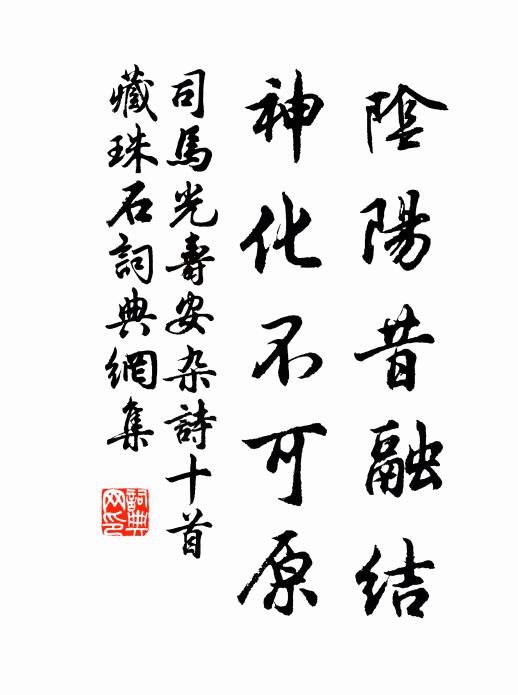 陰陽昔融結
神化不可原
司馬光壽安杂詩十首
藏珠石詞典網集
詞典
网印